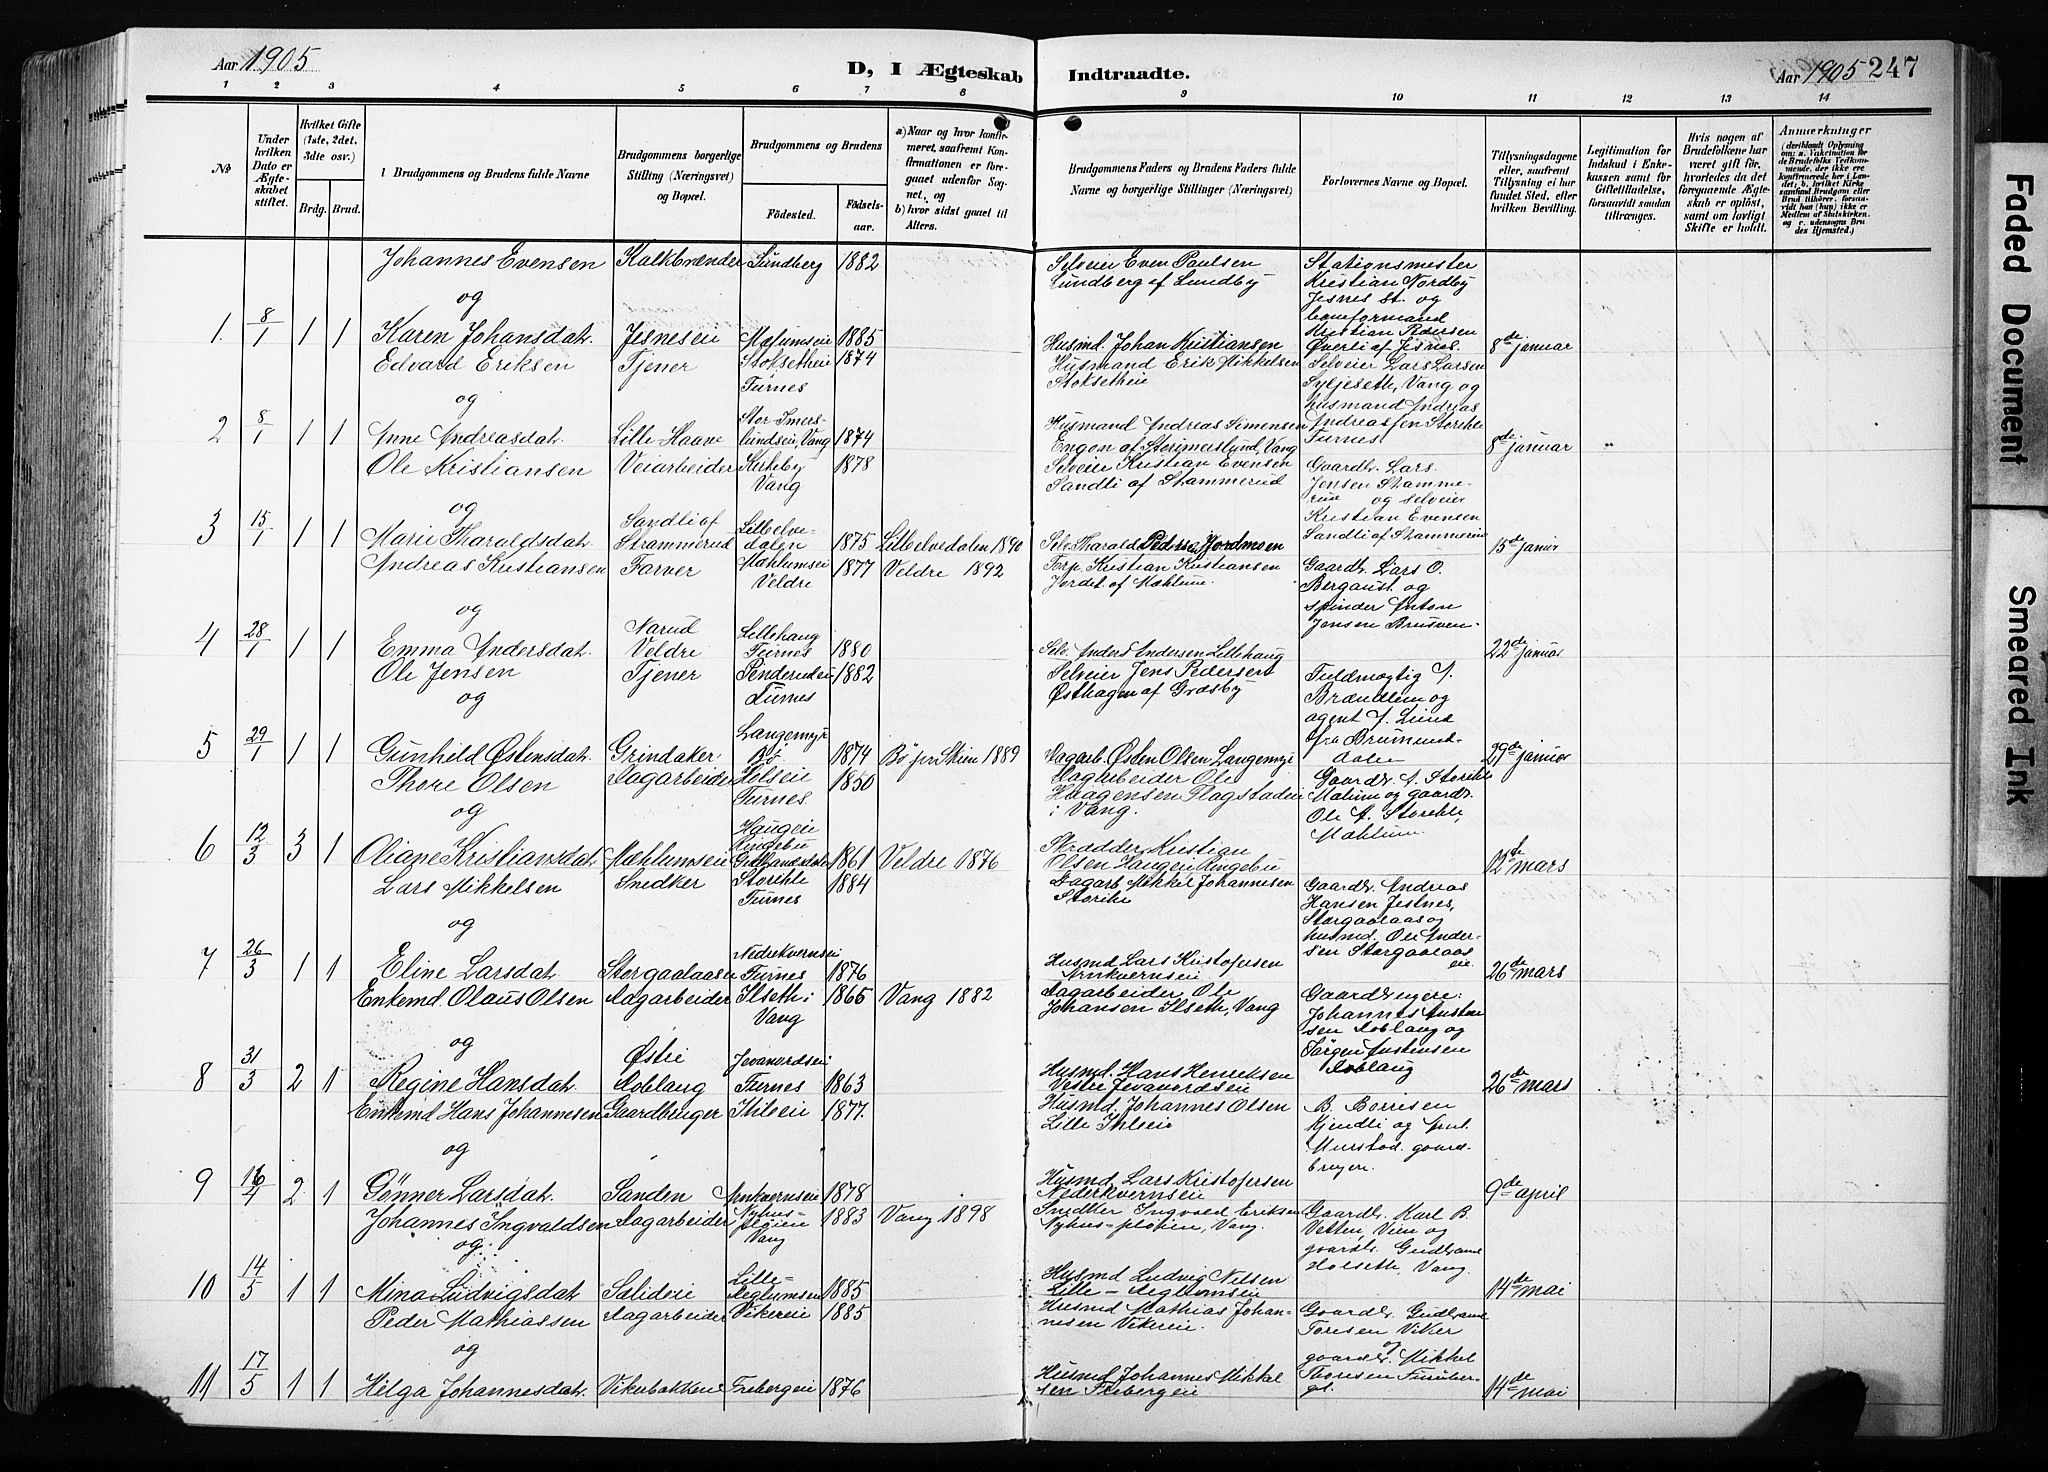 Aar 1905
D, I Ægteskab
Indtraadte.
Aar 1905 247
1 2 3 4 5 6 7 8 9 10 11 12 13 14
No
Under hvilken Dato er Ægteskabet stiftet.
Hvilket Gifte (1ste, 2det, 3die osv.)
Brdg. Brud.
Brudgommens og Brudens fulde Navne
Brudgommens borgerlige Stilling (Næringsvei) og Bopæl.
Brudgommens og Brudens
Fødested.
Fødselsaar.
a) Naar og hvor konfirmeret, saafremt Konfirmationen er foregaaet udenfor Sognet, og
b) hvor sidst gaaet til Alters.
Brudgommens Faders og Brudens Faders fulde Navne og borgerlige Stillinger (Næringsvei)
Forlovernes Navne og Bopæl.
Tillysningsdagene eller, saafremt Tillysning ei har fundet Sted, efter hvilken Bevilling.
Legitimation for Indskud i Enkekassen samt for Giftetilladelse, forsaavidt saadan tiltrænges.
Hvis nogen af Brudefolkene har været gift før, hvorledes da det foregaaende Ægteskab er opløst, samt om lovligt Skifte er holdt.
Anmærkninger
Johannes Evensen Kalkbrænder Lundberg 1882
Selveier Even Paulsen Lundberg af Lundby
Stationsmester Kristian Nordby Jesnes St. og baneformand Kristian Pedersen Øverli af Jesnes.
og
1 8/1 1 1 Karen Johansdat. Jesneseie Mælumseie 1885
Husmd. Johan Kristiansen
8de januar
Edvard Eriksen Tjener Stoksetheie Furnes 1874
Husmand Erik Mikkelsen Stoksetheie
Selveier Lars Larsen Syljeseth, Vang og husmand Andreas Andreassen Storihle Furnes
og
2 8/1 1 1 Anne Andreasdat. Lille-Haave Stor-Imerslundseie, Vang 1874
Husmand Andreas Simensen Engen af Storimerslund, Vang
8de januar
Ole Kristiansen Veiarbeider Kirkeby Vang 1878
Selveier Kristian Evensen Sandli af Stammerud
Gaardbr. Lars Jensen Stammerud og selveier Kristian Evensen Sandli af Stammerud
og
3 15/1 1 1 Marie Tharaldsdat. Sandli af Strammerud Lilleelvedalen 1875 Lilleelvedalen 1890
Selv. Tharald Pedersen Jordmoen
15de januar
Andreas Kristiansen Farver Mæhlumseie Veldre 1877 Veldre 1892
Torp. Kristian Kristiansen Jordet af Mæhlum.
Gaardb. Lars O. Bergaust og spinder Anton Jensen Brusven
og
4 28/1 1 1 Emma Andersdat. Narud Veldre Lillehaug Furnes 1880
Selv. Anders Andersen Lillehaug
22de januar
Ole Jensen Tjener Penderudeie Furnes 1882
Selveier Jens Pedersen Østhagen af Græsby
Fuldmægtig J. Brændlien og agent J. Lund fra Brumunddalen
og
5 29/1 1 1 Gunhild Østensdat. Grindaker Langemyr Bø 1874 Bø pr Skien 1889
Dagarb. Østen Olsen Langemyr
29de januar
Thore Olsen Dagarbeider Holseie Furnes 1850
Dagarbeider Ole Haagensen Flagstadeie i Vang.
Gaardbr. A. Storihle Mælum og gaardb. Ole A. Storihle, Mæhlum.
og
6 12/3 3 1 Oliane Kristiansdat. Mæhlumseie Haugeie Ringebu Gudbrandsdalen 1861 Veldre 1876
Skrædder Kristian Olsen Haugeie Ringebu
12de mars
Lars Mikkelsen Snedker Storihle Furnes 1884
Dagarb. Mikkel Johannesen Storihle
Gaardbr. Andreas Hansen Jesnes, Storgaalaas og husmd. Ole Andersen Storgaalaaseie
og
7 26/3 1 1 Eline Larsdat. Storgaalaasen Nedrekvernseie Furnes 1876
Husmd Lars Kristofersen Arnkvernseie
26de mars
Enkemd. Olaus Olsen Dagarbeider Ilseth i Vang 1865 Vang 1882
Dagarbeider Ole Johansen Ilseth, Vang
Gaardbrugere: Johannes Austensen Doblaug og Jørgen Austensen Doblaug
og
8 31/3 2 1 Regine Hansdat. Østre Doblaug Jevanordseie Furnes 1863
Husmd. Hans Henriksen Vestre Jevanordseie
26de mars
Enkemd Hans Johannesen Gaardbruger Ihlseie 1877.
Husmd. Johannes Olsen Lille Ihlseie
B. Borresen Kjendli og Arnt Murstad. gaardbrugere.
og
9 16/4 2 1 Gønner Larsdat. Sanden Arnkvernseie 1878
Husmd. Lars Kristofersen Nederkvernseie
9de april
Johannes Ingvaldsen Dagarbeider Nyhus-pløien Vang 1883 Vang 1898
Snedker Ingvald Eriksen Nyhus-pløien, Vang.
Gaardbr. Karl B. Vetten, Vien og gaardbr. Gudbrand Holseth, Vang.
og
10 14/5 1 1 Mina Ludvigsdat. Salideie Lille-Deglumsen 1885
Husmd Ludvig Nilsen Lille-Deglumseie
14de mai
Peder Mathiassen Dagarbeider Vikereie 1885
Husmd Mathias Johannesen Vikereie.
Gaardbr. Gudbrand Toresen Viker og gaardbr. Mikkel Thoresen Furuberget.
og
11 17/5 1 1 Hilga Johannesdat. Vikerbakkene Freberg eie 1876
Husmd Johannes Mikkelsen Frebergeie
14de mai
Faded Document
Smeared Ink